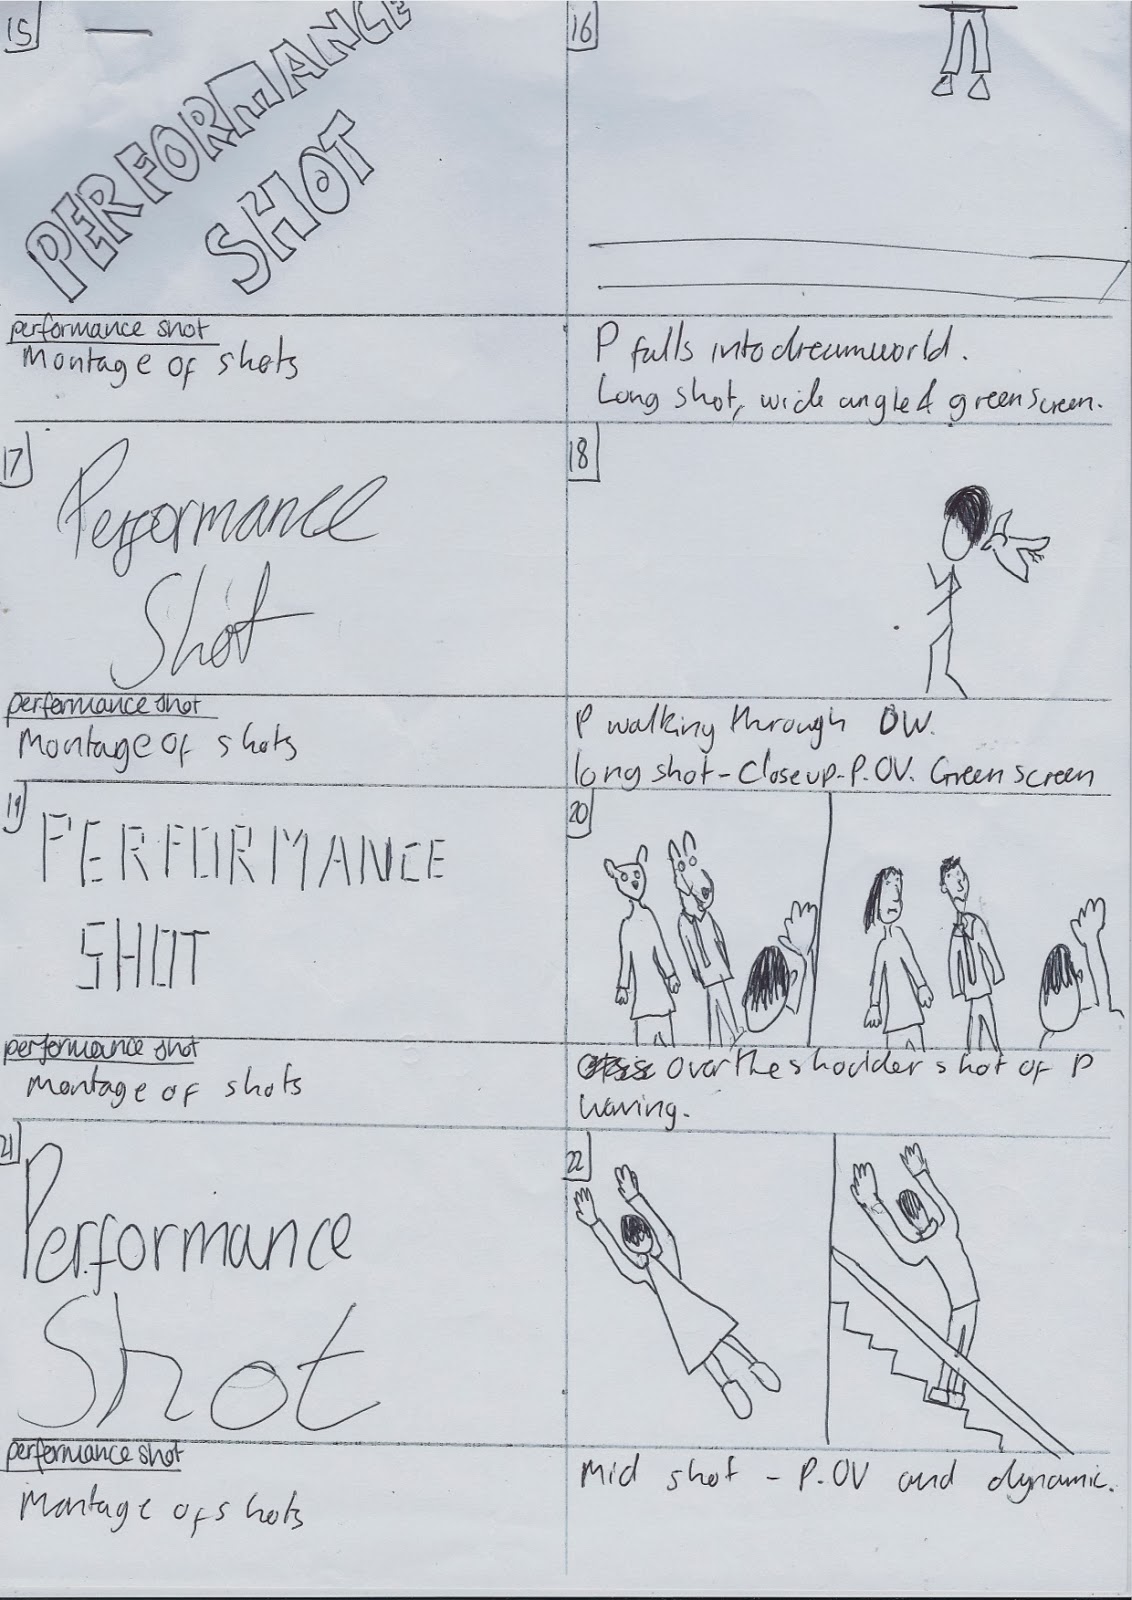 15
PERFORMANCE
SHOT
performance shot
Montage of shots
16
P falls into dreamworld.
Long shot, wide angle & green screen.
17
Performance
Shot
performance shot
Montage of shots
18
P walking through DW.
long shot - Close up - P.OV. Green screen
19
PERFORMANCE
SHOT
performance shot
Montage of shots
20
over the shoulder shot of P
waving.
21
Performance
Shot
performance shot
Montage of shots
22
Mid shot - P.OV and dynamic.